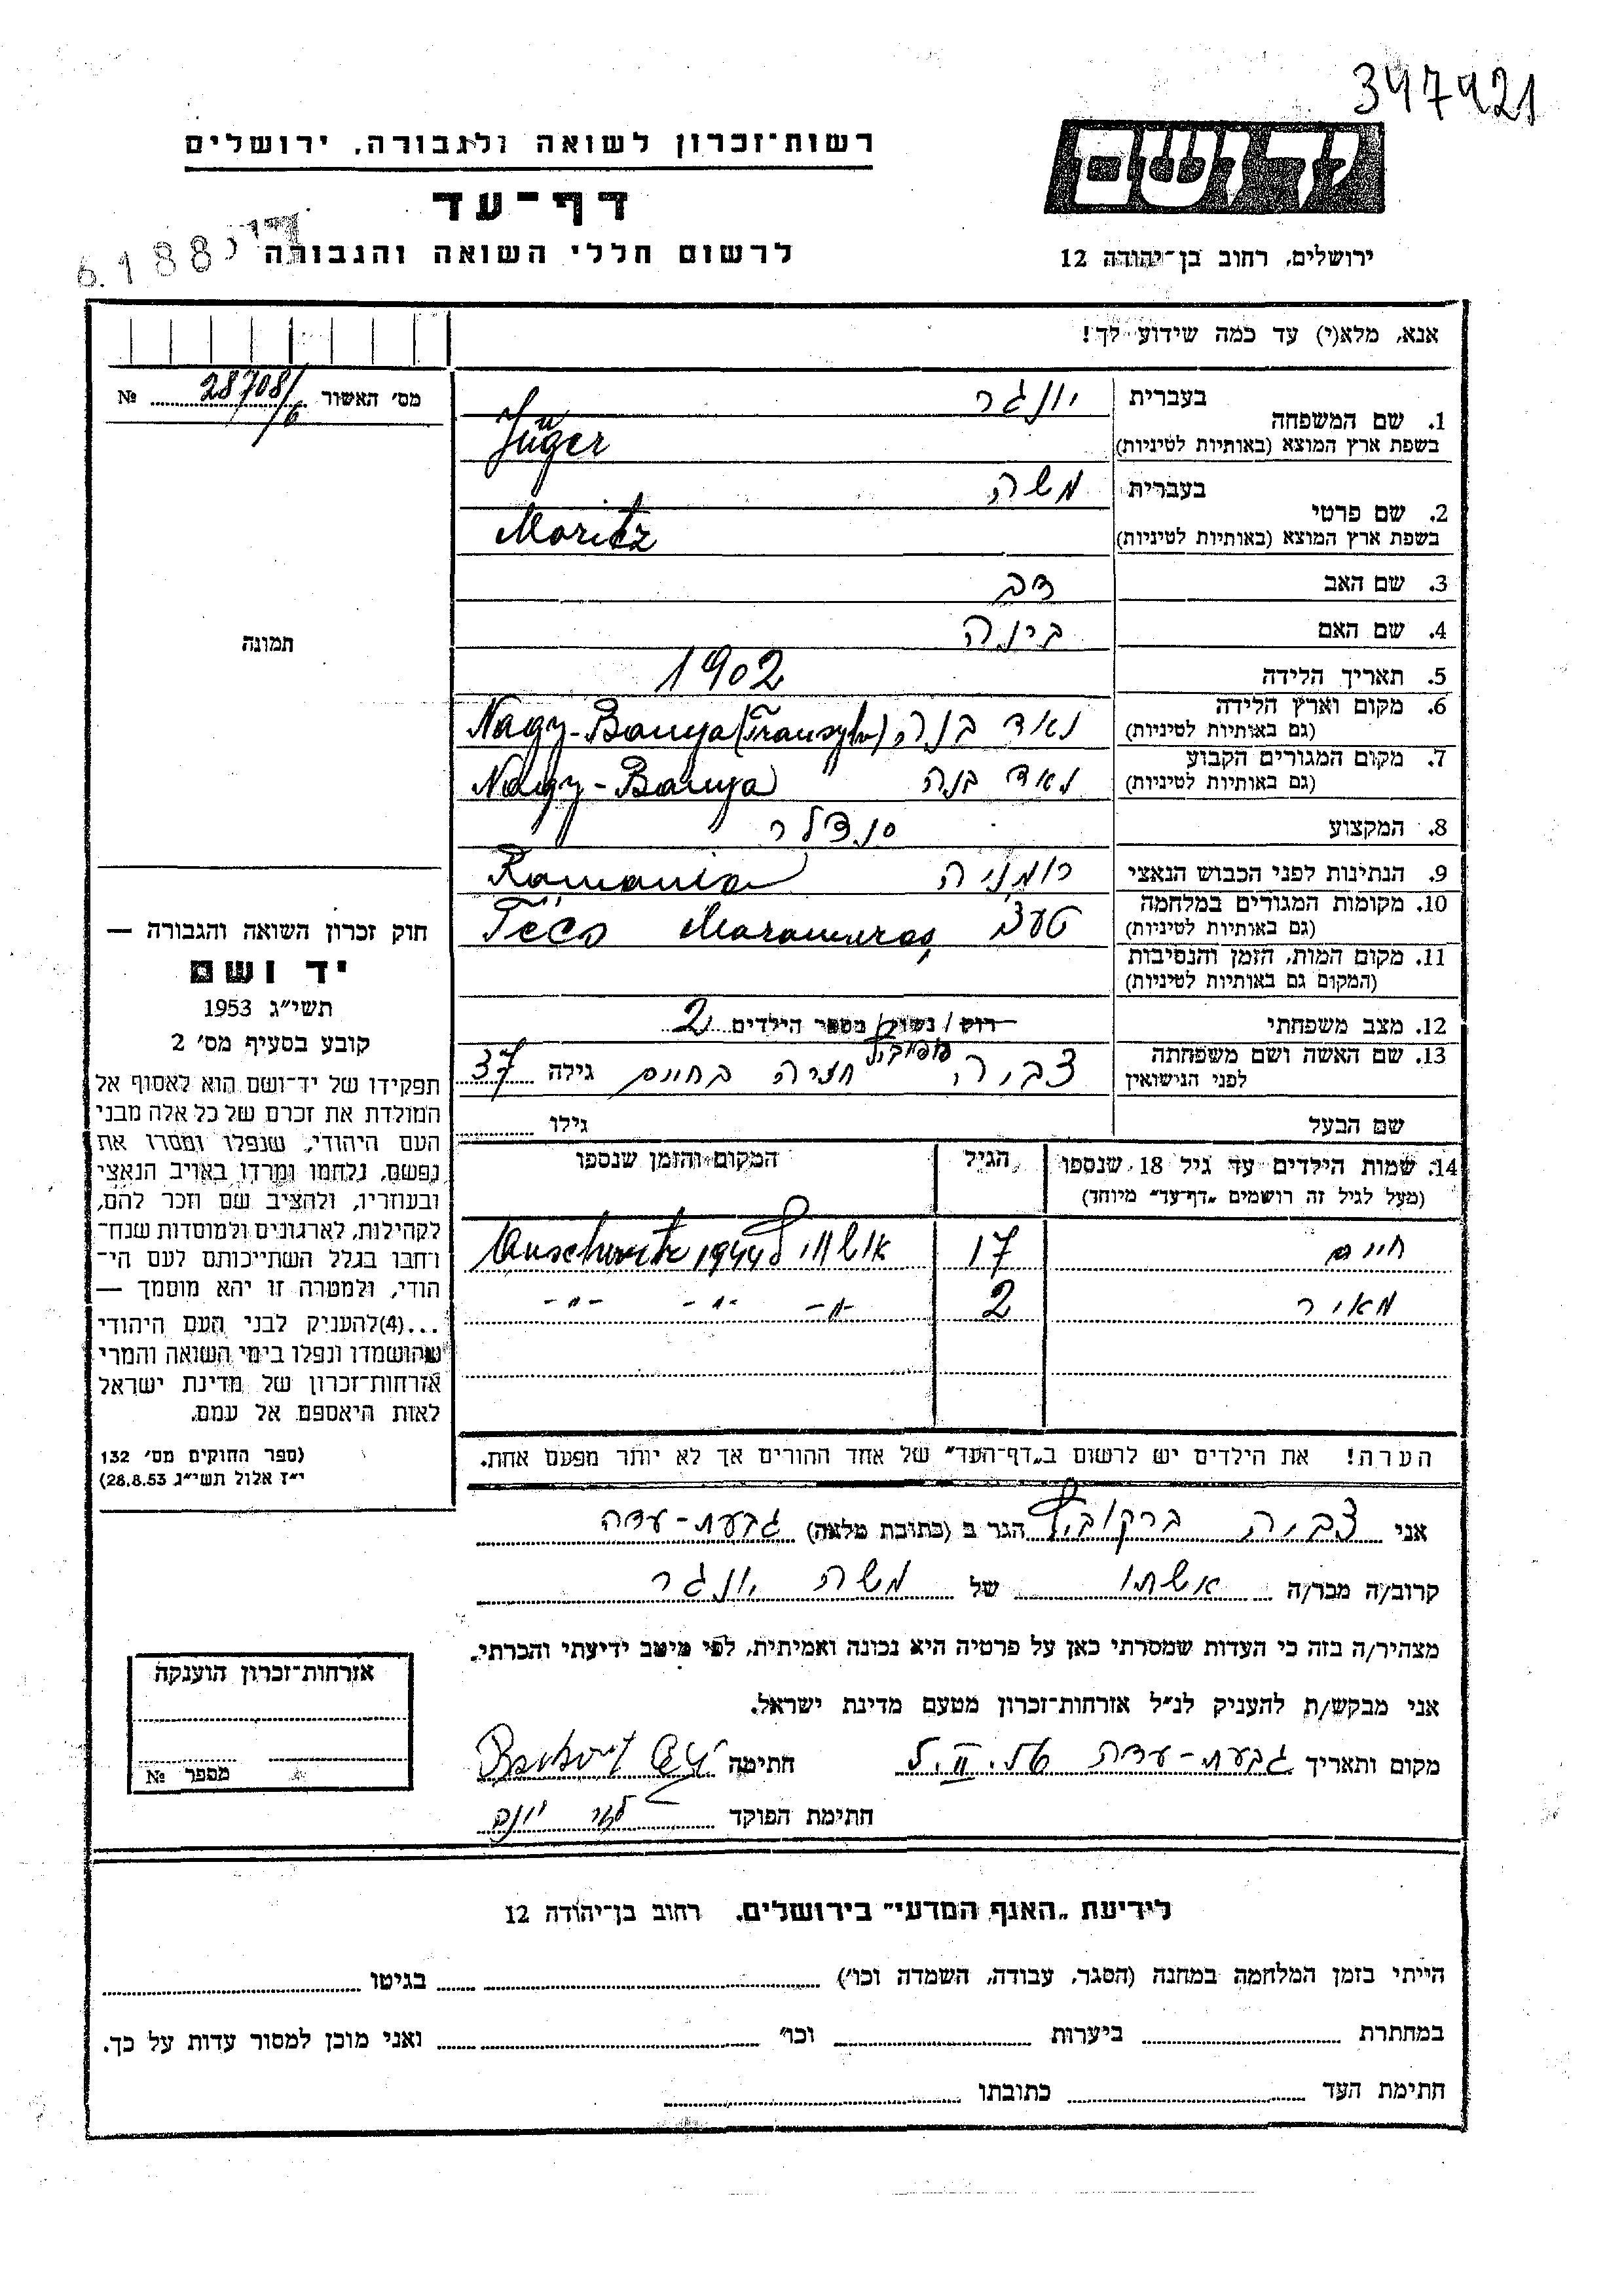 347421
יד ושם
רשות־זכרון לשואה ולגבורה, ירושלים
דף־עד
לרשום חללי השואה והגבורה
ירושלים, רחוב בן־יהודה 12
6.188
אנא, מלא(י) עד כמה שידוע לך!
מס' האשור 28708/6 №
תמונה
1. שם המשפחה
בעברית יונגר
בשפת ארץ המוצא (באותיות לטיניות) Jünger
2. שם פרטי
בעברית משה
בשפת ארץ המוצא (באותיות לטיניות) Moritz
3. שם האב דב
4. שם האם בינה
5. תאריך הלידה 1902
6. מקום וארץ הלידה
(גם באותיות לטיניות) נאד בנה, Nagy-Banya (Transylv)
7. מקום המגורים הקבוע
(גם באותיות לטיניות) נאד בנה Nagy-Banya
8. המקצוע סנדלר
9. הנתינות לפני הכבוש הנאצי רומניה Romania
10. מקומות המגורים במלחמה
(גם באותיות לטיניות) טעצ Maramures Teco
11. מקום המות, הזמן והנסיבות
(המקום גם באותיות לטיניות)
12. מצב משפחתי רוק/נשוי/ מספר הילדים 2
13. שם האשה ושם משפחתה
לפני הנישואין צביה גילה 37
שם הבעל גילו
14. שמות הילדים עד גיל 18 שנספו
(מעל לגיל זה רושמים „דף־עד" מיוחד)
הגיל
המקום והזמן שנספו
חיים 17 אושוויץ Auschwitz 1944
מאיר 2 -"- -"- -"-
הערה! את הילדים יש לרשום ב„דף־העד" של אחד ההורים אך לא יותר מפעם אחת.
חוק זכרון השואה והגבורה —
יד ושם
תשי"ג 1953
קובע בסעיף מס' 2
תפקידו של יד־ושם הוא לאסוף אל
המולדת את זכרם של כל אלה מבני
העם היהודי, שנפלו ומסרו את
נפשם, נלחמו ומרדו באויב הנאצי
ובעוזריו, ולהציב שם וזכר להם,
לקהילות, לארגונים ולמוסדות שנח־
רחבו בגלל השתייכותם לעם הי־
הודי, ולמטרה זו יהא מוסמך —
...(4) להעניק לבני העם היהודי
שהושמדו ונפלו בימי השואה והמרי
אזרחות־זכרון של מדינת ישראל
לאות היאספם אל עמם.
(ספר החוקים מס' 132
י"ז אלול תשי"ג 28.8.53)
אני צביה ברקוביץ הגר ב (כתובת מלאה) גבעת-עדה
קרוב/ה מכר/ה אשתו של משה יונגר
מצהיר/ה בזה כי העדות שמסרתי כאן על פרטיה היא נכונה ואמיתית, לפי מיטב ידיעתי והכרתי.
אני מבקש/ת להעניק לנ"ל אזרחות־זכרון מטעם מדינת ישראל.
מקום ותאריך גבעת-עדה חתימה
חתימת הפוקד
אזרחות־זכרון הוענקה
מספר №
לידיעת „האגף המדעי" בירושלים, רחוב בן־יהודה 12
הייתי בזמן המלחמה במחנה (הסגר, עבודה, השמדה וכו') בגיטו
במחתרת ביערות וכו' ואני מוכן למסור עדות על כך.
חתימת העד כתובתו